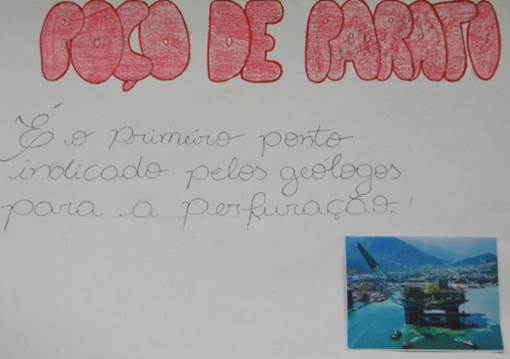 POÇO DE PARATI
É o primeiro ponto
indicado pelos geólogos
para a perfuração.